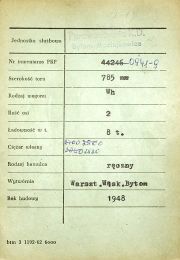 Jednostka służbowa
Nr inwentarza PKP 44245-0441-G
Szerokość toru 785 mm
Rodzaj wagonu Wh
Ilość osi 2
Ładowność w t. 8 t.
Ciężar własny
Rodzaj hamulca ręczny
Wytwórnia Warszt.Wąsk.Bytom
Rok budowy 1948